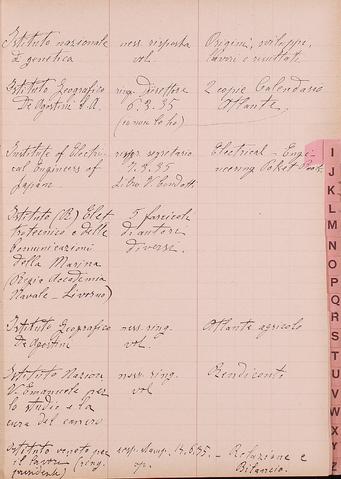 Istituto nazionale ness. risposta Origini, sviluppi,
di genetica vol. lavori e risultati
Istituto Geografico ring. Direttore 2 copie Calendario
De Agostini S.A. 6.3.35 Atlante.
(io non l'ho)
Institute of Electri- segretario Electrical-Engi-
cal Engineers of 7.3.35 neering Poket Book
Japan. Libro V.
Istituto (R) Elet- 5 fascicoli
trotecnico e delle di autori
Comunicazioni diversi.
della Marina
(Regia Accademia
Navale - Livorno)
Istituto Geografico ness. ring. Atlante agricolo
De Agostini vol.
Istituto Nazion. ness. ring. Rendiconto
V. Emanuele per vol
lo studio e la
cura del cancro
Istituto veneto per resp. stamp. .6.35. - Relazione e
il lavoro (ring. op. Bilancio.
I
J
K
L
M
N
O
P
Q
R
S
T
U
V
W
X
Y
Z